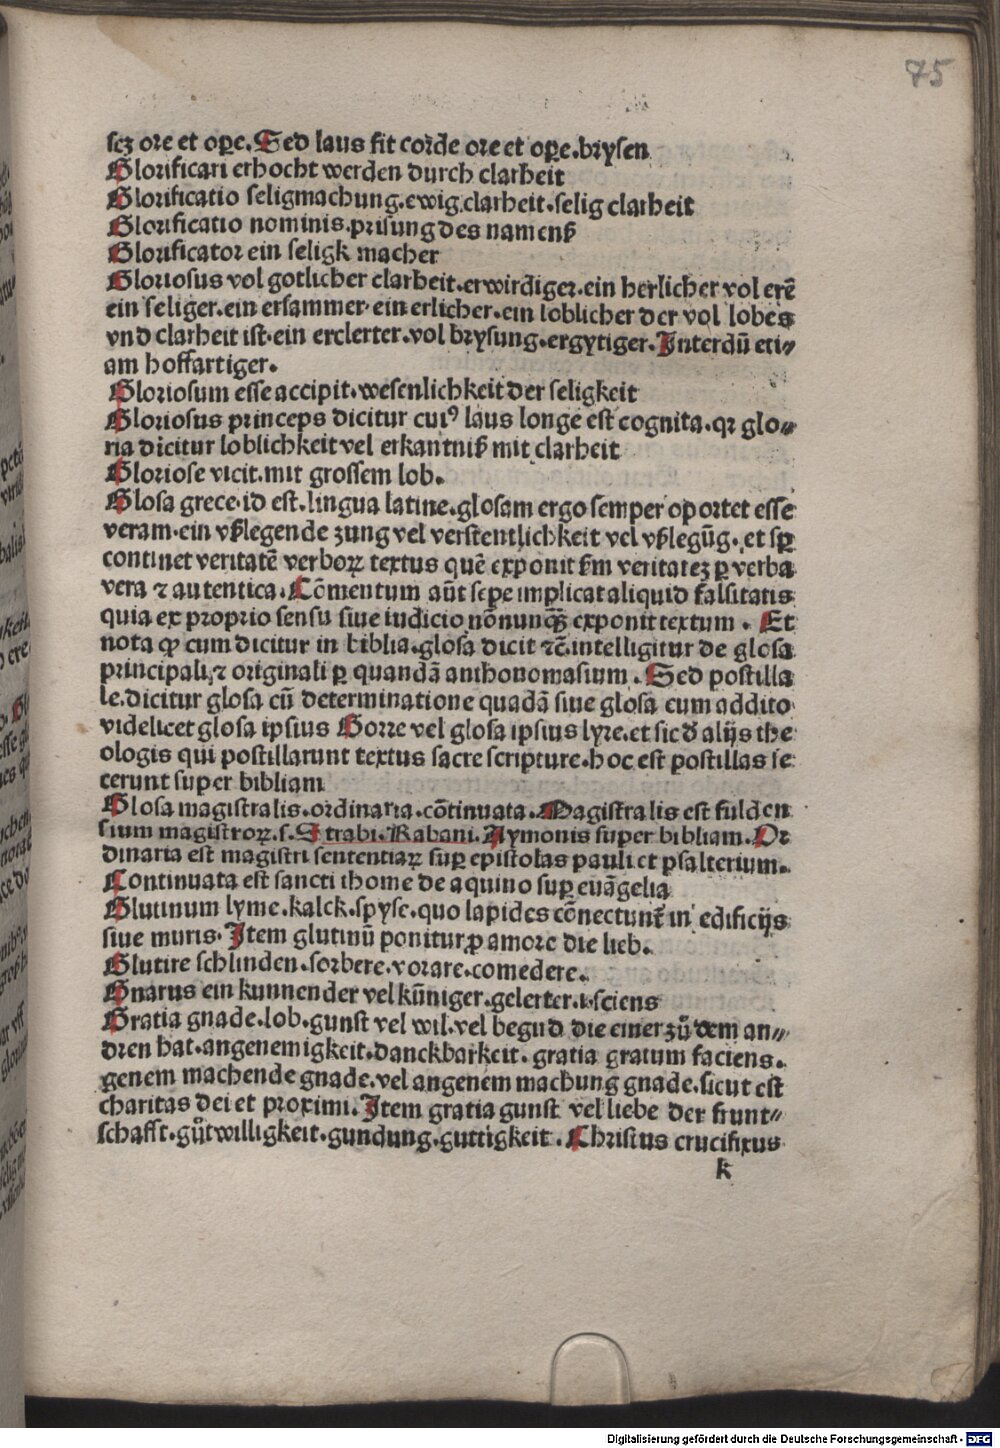 75
scz ore et oꝑe. Sed laus fit corde ore et oꝑe. brysen
Glorificari erhocht werden durch clarheit
Glorificatio seligmachung. ewig clarheit. selig clarheit
Glorificatio nominis. prisung des namenß
Glorificator ein seligk macher
Gloriosus vol gotlicher clarheit. erwirdiger. ein herlicher vol erē
ein seliger. ein ersammer. ein erlicher. ein loblicher der vol lobes
vnd clarheit ist. ein erclerter. vol brysung. ergytiger. Interdū eti⸗
am hoffartiger.
Gloriosum esse accipit. wesenlichkeit der seligkeit
Gloriosus princeps dicitur cuiꝰ laus longe est cognita. qꝛ glo⸗
ria dicitur loblichkeit vel erkantniß mit clarheit
Gloriose vicit. mit grossem lob.
Glosa grece. id est. lingua latine. glosam ergo semper oportet esse
veram. ein vßlegende zung vel verstentlichkeit vel vßlegūg. et sꝑ
continet veritatē verboꝝ textus quē exponit ẜm veritatez ꝑ verba
vera ⁊ autentica. Cōmentum aūt sepe implicat aliquid falsitatis
quia ex proprio sensu siue iudicio nōnunꝙ̄ exponit textum. Et
nota ꝙ cum dicitur in biblia. glosa dicit ⁊c̄. intelligitur de glosa
principali ⁊ originali ꝑ quandā anthonomasium. Sed postilla
le. dicitur glosa cū determinatione quadā siue glosa cum addito
videlicet glosa ipsius Gorre vel glosa ipsius lyre. et sic d̄ alijs the
ologis qui postillarunt textus sacre scripture. hoc est postillas fe
cerunt super bibliam
Glosa magistralis. ordinaria. cōtinuata. Magistralis est fulden
sium magistroꝝ. s. Strabi. Rabani. Aymonis super bibliam. Or
dinaria est magistri sententiaꝝ suꝑ epistolas pauli et psalterium.
Continuata est sancti thome de aquino suꝑ euāgelia
Glutinum lyme. kalck. spyse. quo lapides cōnectunt̄ in edificijs
siue muris. Item glutinū ponitur ꝓ amore die lieb.
Glutire schlinden. sorbere. vorare. comedere.
Gnarus ein kunnender vel kūniger. gelerter. i. sciens
Gratia gnade. lob. gunst vel wil. vel begud die einer zů dem an⸗
dren hat. angenemigkeit. danckbarkeit. gratia gratum faciens.
genem machende gnade. vel angenem machung gnade. sicut est
charitas dei et proximi. Item gratia gunst vel liebe der frunt⸗
schafft. gůtwilligkeit. gundung. guttigkeit. Christus crucifixus
k
Digitalisierung gefördert durch die Deutsche Forschungsgemeinschaft - DFG